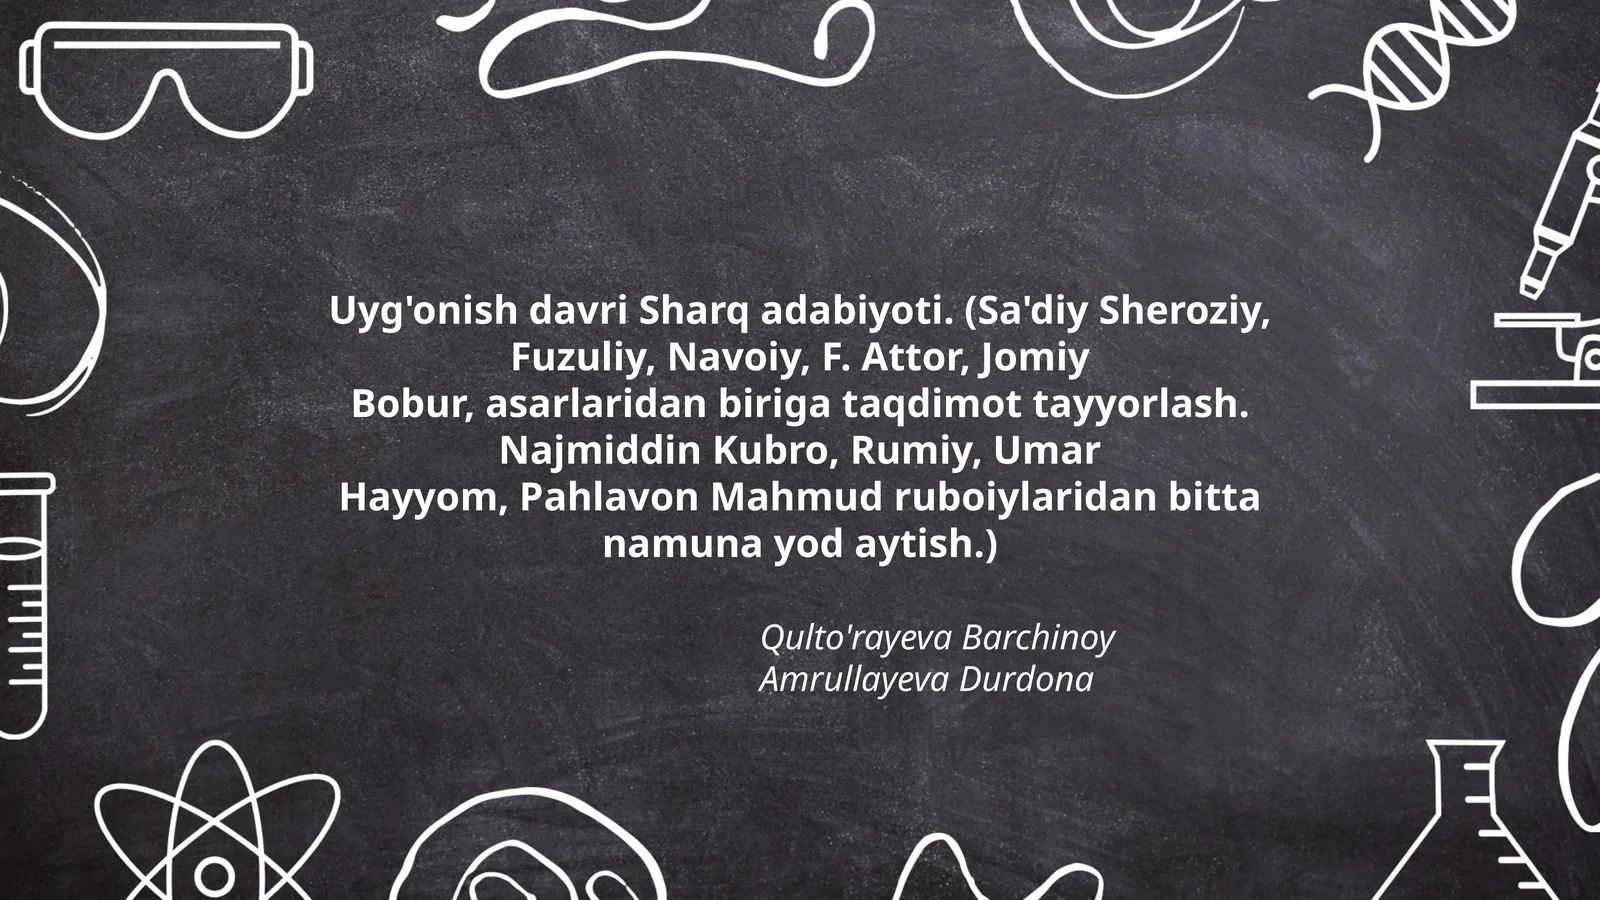 Uyg'onish davri Sharq adabiyoti. (Sa'diy Sheroziy,
Fuzuliy, Navoiy, F. Attor, Jomiy
Bobur, asarlaridan biriga taqdimot tayyorlash.
Najmiddin Kubro, Rumiy, Umar
Hayyom, Pahlavon Mahmud ruboiylaridan bitta
namuna yod aytish.)
Qulto'rayeva Barchinoy
Amrullayeva Durdona